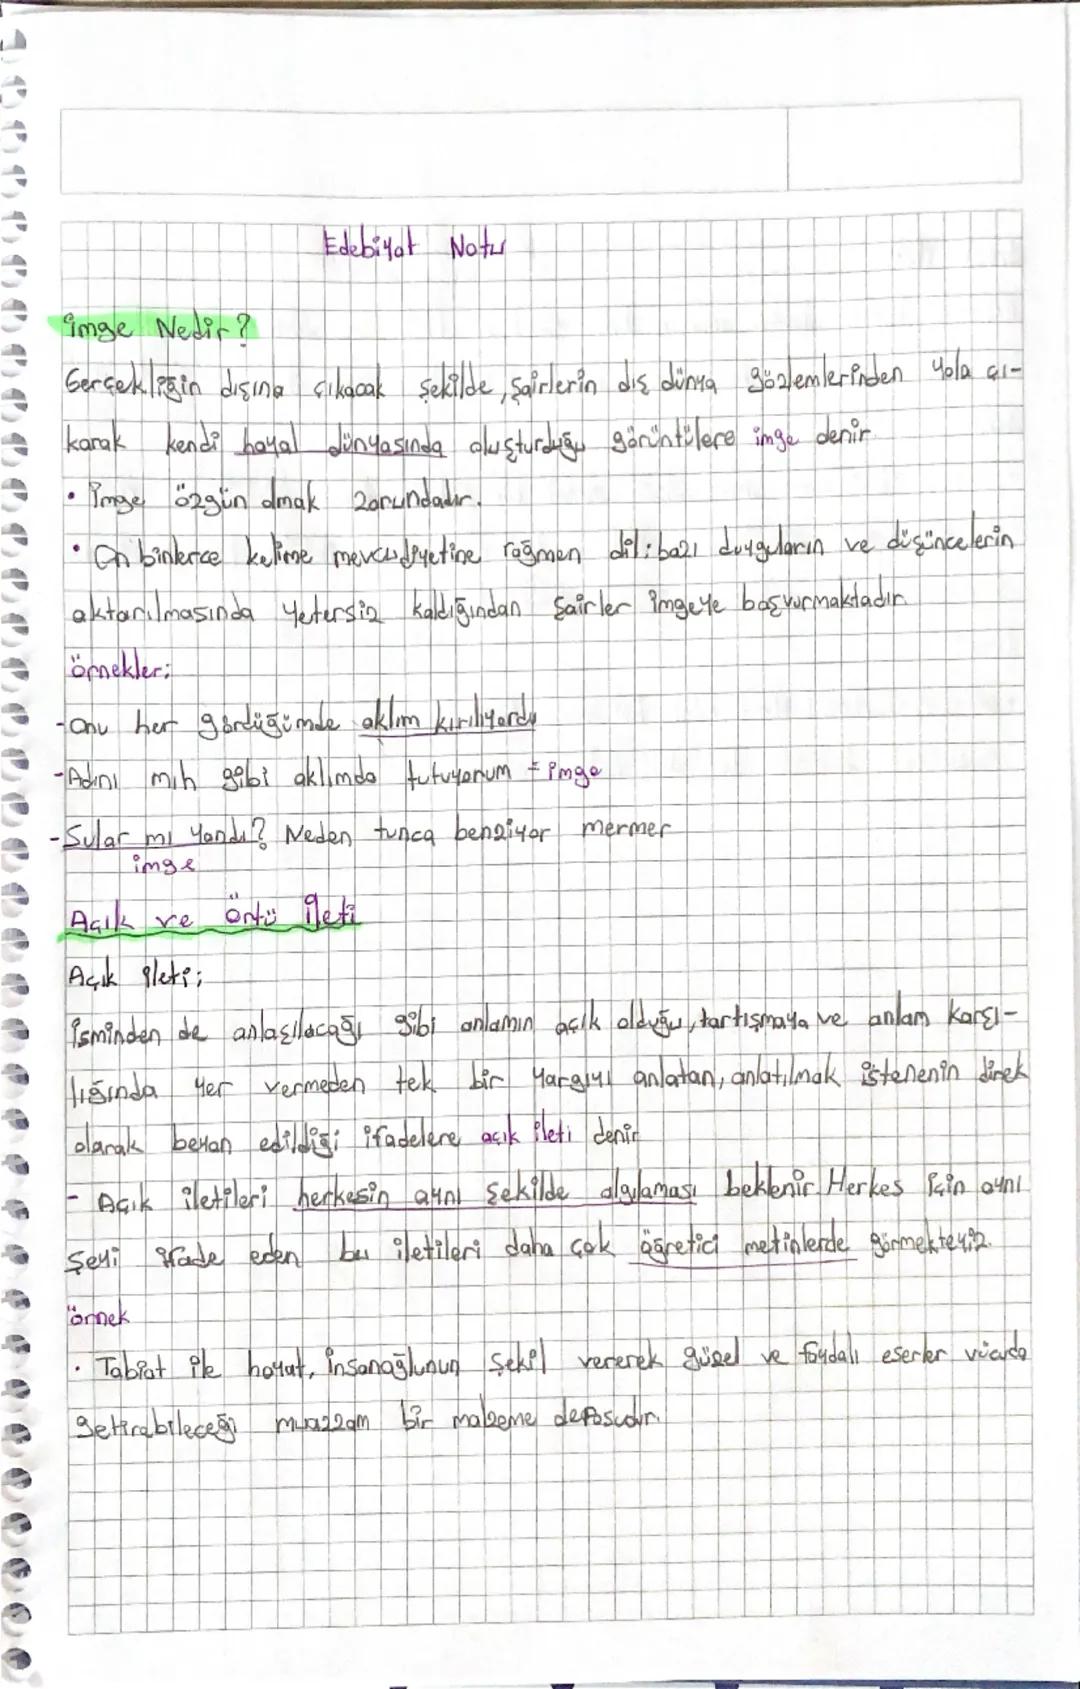 Edebiyat Notu
İmge Nedir?
Gerçekliğin dışına çıkacak şekilde, şairlerin dış dünya gözlemlerinden yola çı-
karak kendi hayal dünyasında oluşturduğu görüntülere imge denir
• İmge özgün olmak zorundadır.
• On binlerce kelime mevcudiyetine rağmen dil; bazı duyguların ve düşüncelerin
aktarılmasında yetersiz kaldığından şairler imgeye başvurmaktadır.
Örnekler;
-Onu her gördüğümde aklım kırılıyordu
-Adını mıh gibi aklımda tutuyorum = imge
-Sular mı yandı? Neden tunca benziyor mermer
imge
Açık ve Örtü İleti
Açık ileti;
İsminden de anlaşılacağı gibi anlamın açık olduğu, tartışmaya ve anlam karşı-
lığında yer vermeden tek bir yargıyı anlatan, anlatılmak istenenin direk
olarak beyan edildiği ifadelere açık ileti denir
- Açık iletileri herkesin aynı şekilde algılaması beklenir. Herkes için aynı
şeyi ifade eden bu iletileri daha çok öğretici metinlerde görmekteyiz.
Örnek
• Tabiat ile hayat, insanoğlunun şekil vererek güzel ve faydalı eserler vücuda
getirabileceği muazzam bir malzeme deposudur.